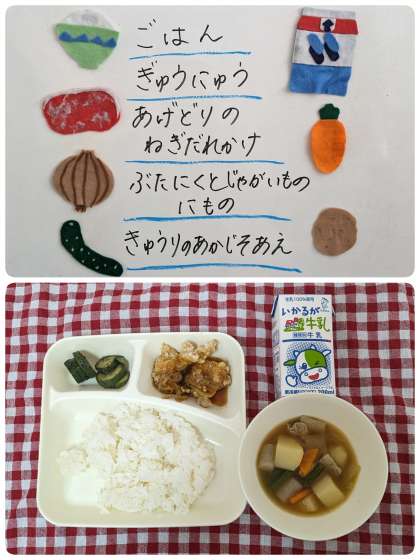 ごはん
ぎゅうにゅう
あげどりの
ねぎだれかけ
ぶたにくとじゃがいもの
にもの
きゅうりのあかじそあえ
生乳100%使用
いかるが
牛乳
牛乳
200ml